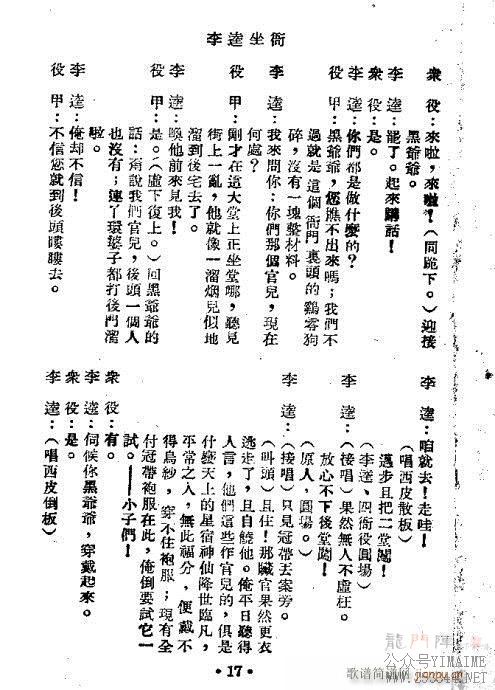 李逵坐衙
眾役：來啦，來啦！（同跪下。）迎接
黑爺爺。
李逵：罷了。起來講話！
眾役：是。
李逵：你們都是做什麼的？
役甲：黑爺爺，您瞧不出來嗎；我們不
過就是這個衙門裏頭的鷄零狗
碎，沒有一塊整材料。
李逵：我來問你：你們那個官兒，現在
何處？
役甲：剛才在這大堂上正坐堂哪，聽見
街上一亂，他就像一溜烟兒似地
溜到後宅去了。
李逵：喚他前來見我！
役甲：是。（虛下復上。）回黑爺爺的
話：甭說我們官兒，後頭一個人
也沒有；連丫環婆子都打後門溜
啦。
李逵：俺却不信！
役甲：不信您就到後頭瞜瞜去。
李逵：喧就去！走哇！
（唱西皮散板）
邁步且把二堂闖！
（李逵、四衙役圓場）
李逵：（接唱）果然無人不虛枉。
放心不下後堂闖！
（原人，圓場。）
李逵：（接唱）只見冠帶丟案旁。
（叫頭）且住！那贓官果然更衣
逃走了，且自饒他。俺平日聽得
人言，他們這些作官兒的，俱是
什麼天上的星宿神仙降世臨凡，
平常之人，無此福分，便戴不
得烏紗，穿不住袍服；現有全
付冠帶袍服在此，俺倒要試它一
試。——小子們！
眾役：有。
李逵：伺候你黑爺爺，穿戴起來。
眾役：是。
李逵：（唱西皮倒板）
·17·
龍門陣
公众号YIMAIME
歌谱简谱网